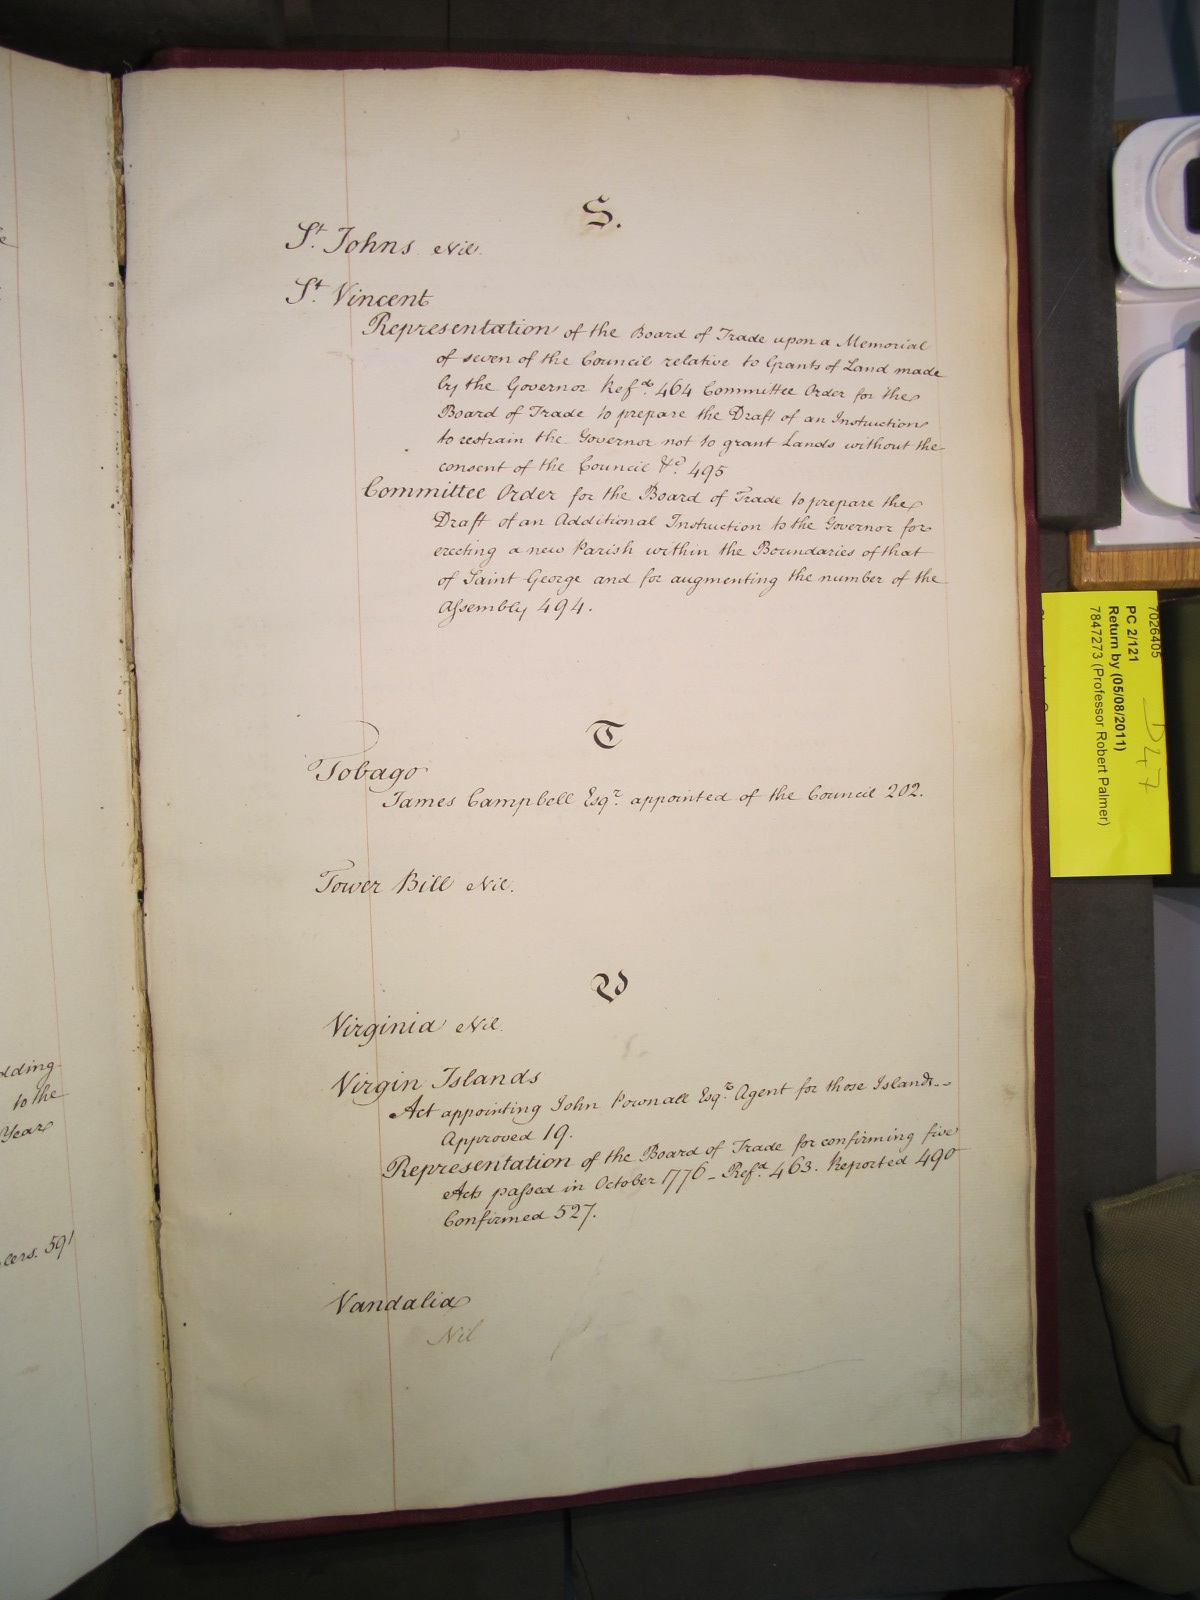 S.
St. Johns Nil.
St. Vincent
Representation of the Board of Trade upon a Memorial
of seven of the Council relative to Grants of Land made
by the Governor Refd. 464 Committee Order for the
Board of Trade to prepare the Draft of an Instruction
to restrain the Governor not to grant Lands without the
consent of the Council &c. 495
Committee Order for the Board of Trade to prepare the
Draft of an Additional Instruction to the Governor for
erecting a new Parish within the Boundaries of that
of Saint George and for augmenting the number of the
Assembly 494.
T
Tobago
James Campbell Esqr. appointed of the Council 202.
Tower Bill Nil.
V
Virginia Nil.
Virgin Islands
Act appointing John Pownall Esqr. Agent for those Islands--
Approved 19.
Representation of the Board of Trade for confirming five
Acts passed in October 1776 - Refd. 463. Reported 490
Confirmed 527.
Vandalia
Nil
dding
to the
Year
lers. 591
7026405
PC 2/121
Return by (05/08/2011)
7847273 (Professor Robert Palmer)
D47